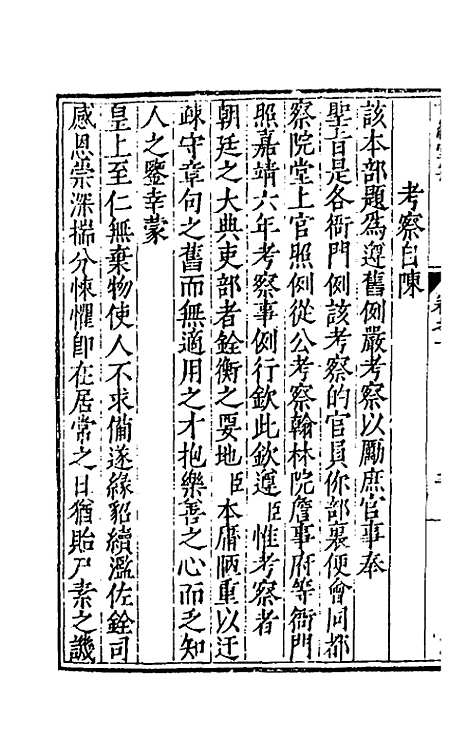 考察自陳
該本部題爲遵舊例嚴考察以勵庶官事奉
聖旨是各衙門例該考察的官員你部裏便會同都
察院堂上官照例從公考察翰林院詹事府等衙門
照嘉靖六年考察事例行欽此欽遵臣惟考察者
朝廷之大典吏部者銓衡之要地臣本庸陋重以迂
疎守章句之舊而無適用之才抱樂善之心而乏知
人之鑒幸蒙
皇上至仁無棄物使人不求備遂緣貂續濫佐銓司
感恩崇深揣分悚懼即在居常之日猶貽尸素之譏